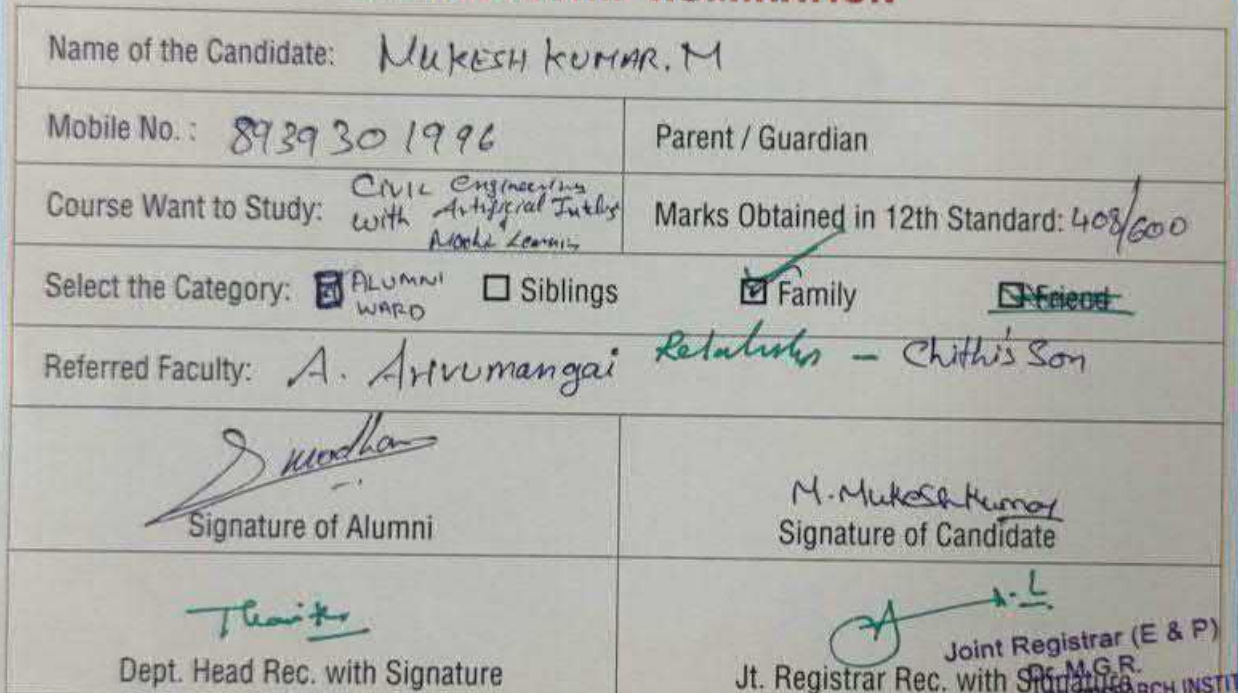 NOMINATION
Name of the Candidate: MUKESH KUMAR. M
Mobile No. : 8939301996
Parent / Guardian
Course Want to Study: Civil Engineering
with Artificial
Marks Obtained in 12th Standard: 408/600
Select the Category: ALUMNI WARD Siblings Family Friend
Referred Faculty: A. Arivumangai
- Chithi's Son
Signature of Alumni
M. Mukesh Kumar
Signature of Candidate
Dept. Head Rec. with Signature
Joint Registrar (E & P)
Dr. M.G.R.
Jt. Registrar Rec. with Signature